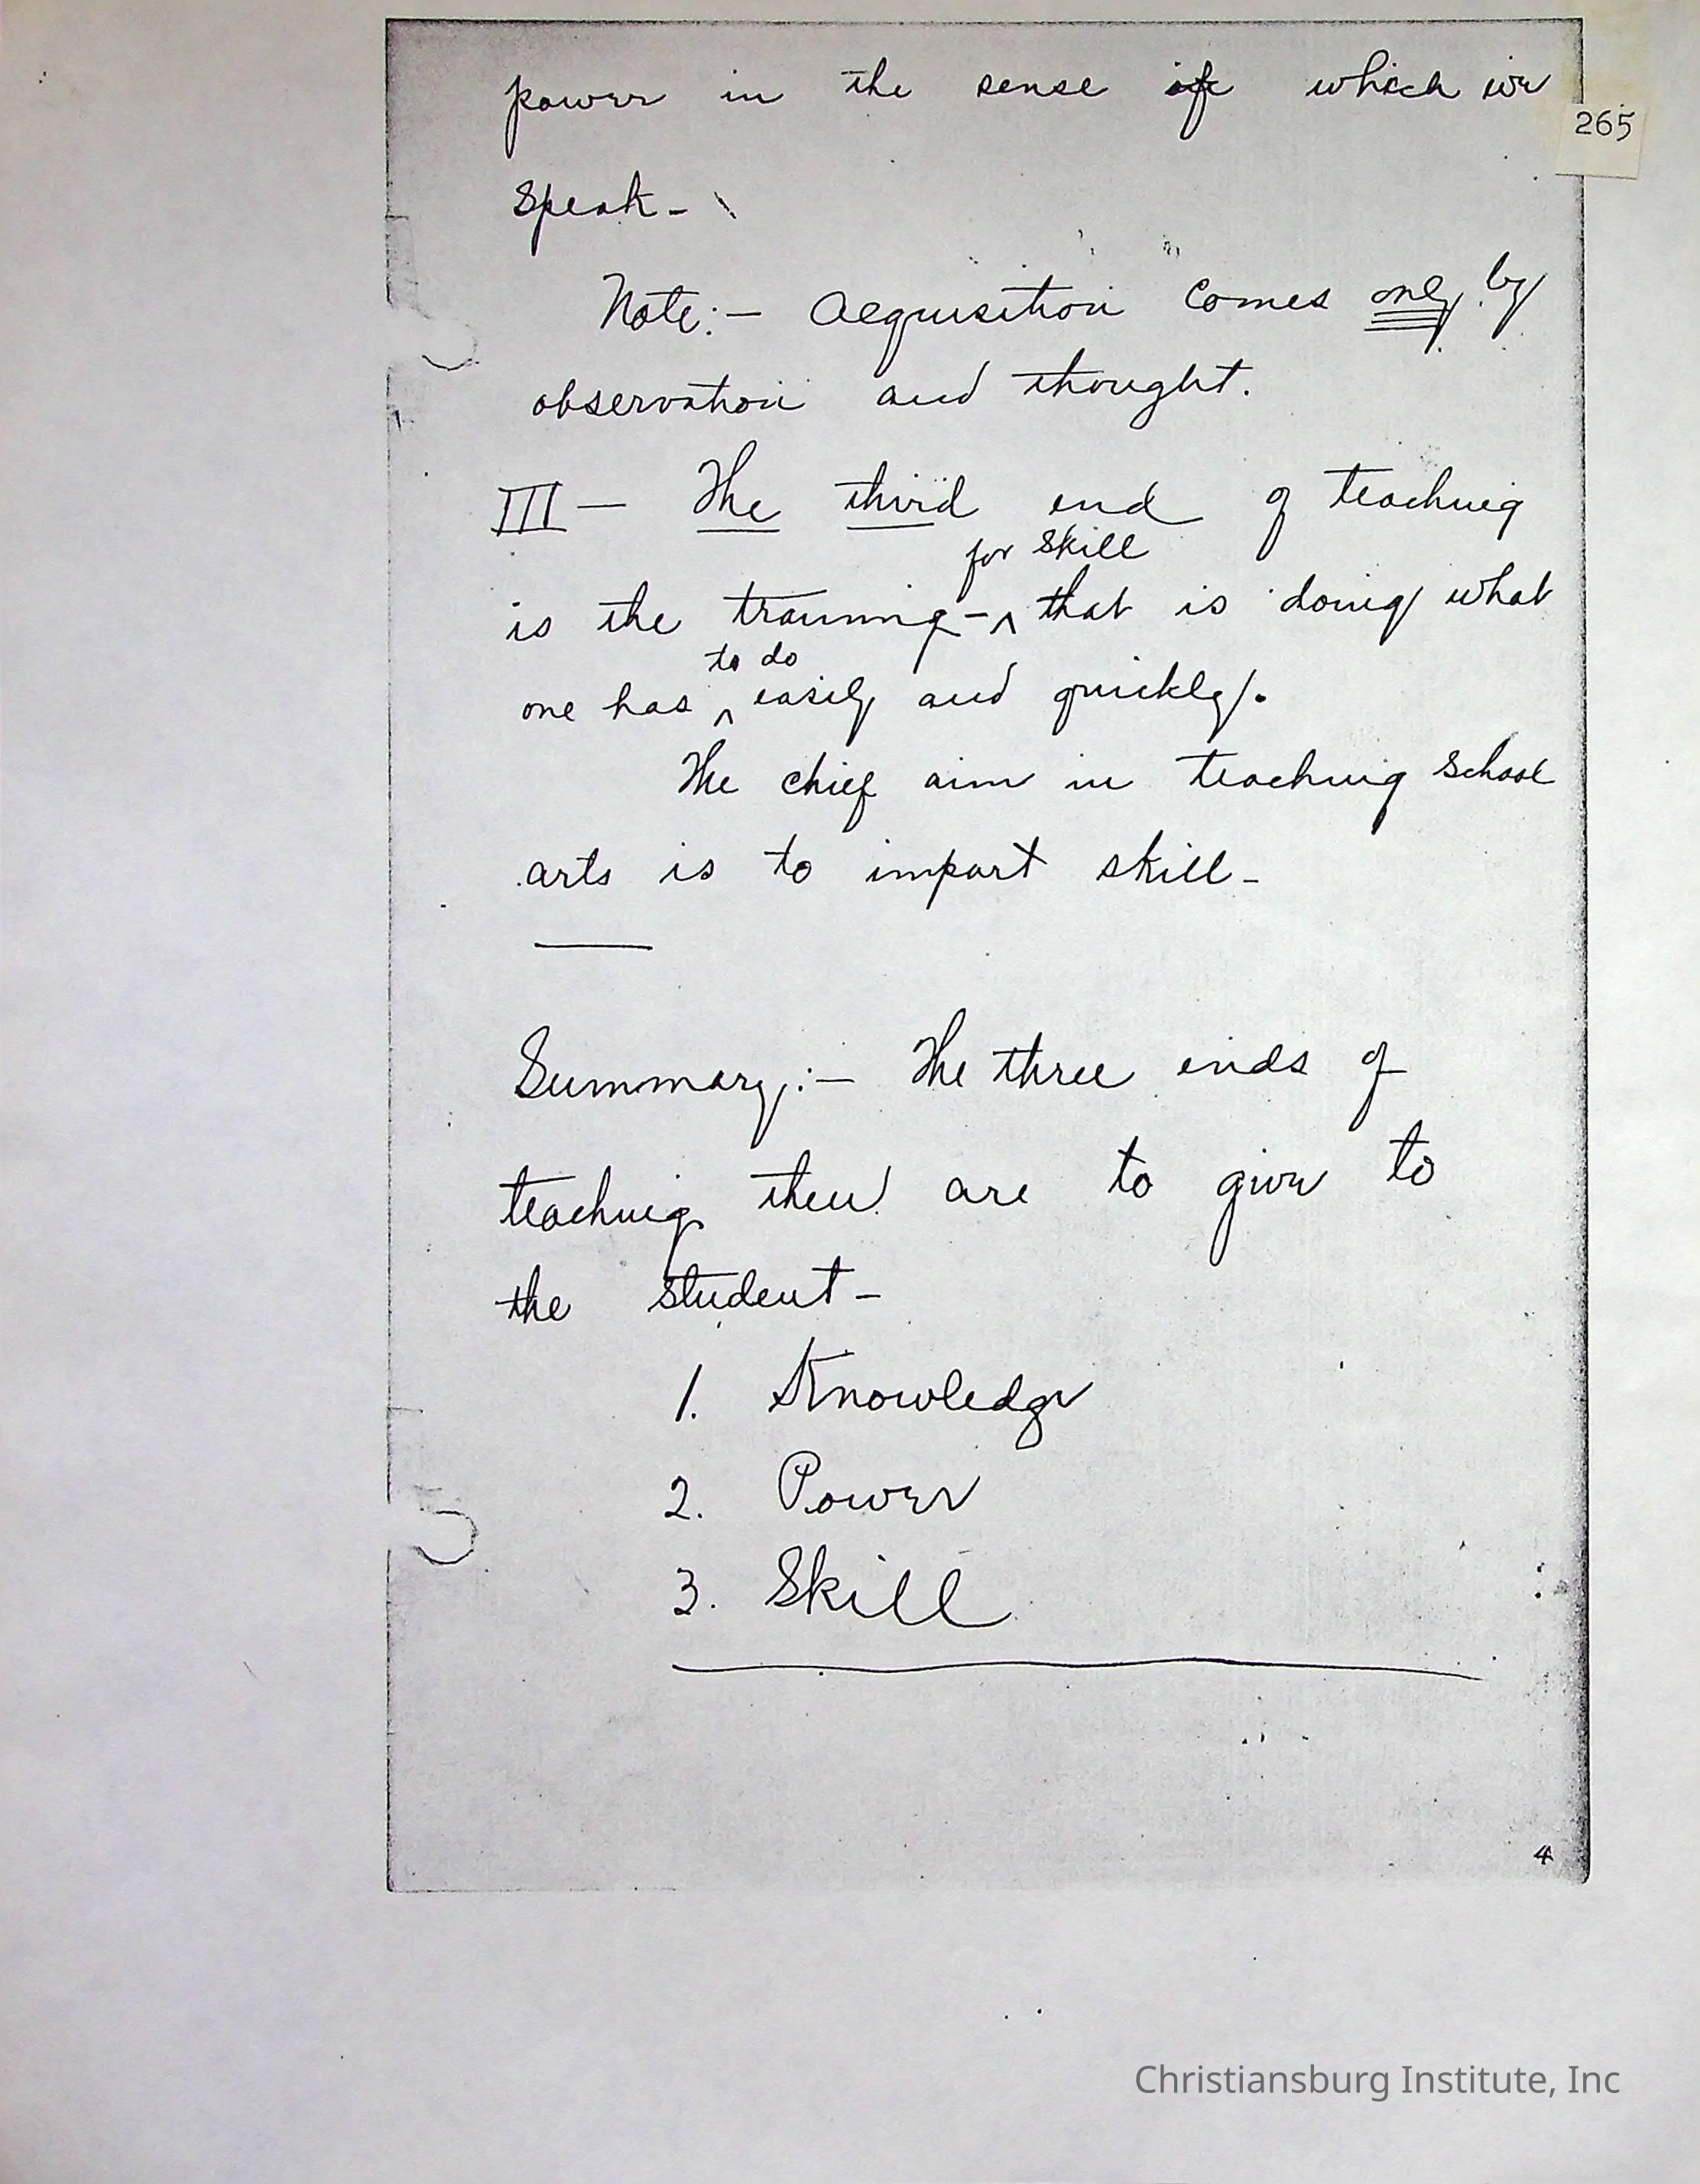 power in the sense of which we
265
speak-
Note:- Acquisition comes only by
observation and thought.
III- The third end of teaching
for skill
is the training-^ that is doing what
to do
one has ^ easily and quickly.
The chief aim in teaching school
arts is to impart skill-
Summary:- The three ends of
teaching then are to give to
the student-
1. Knowledge
2. Power
3. Skill
4
Christiansburg Institute, Inc